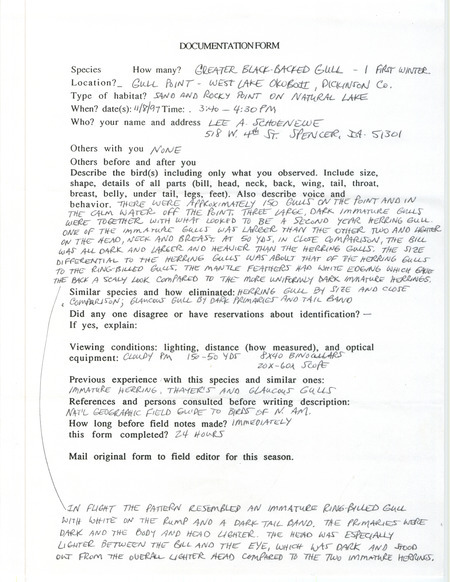 DOCUMENTATION FORM
Species How many? GREATER BLACK-BACKED GULL - 1 FIRST WINTER
Location? GULL POINT - WEST LAKE OKOBOJI, DICKINSON CO.
Type of habitat? SAND AND ROCKY POINT ON NATURAL LAKE
When? date(s): 11/8/97 Time: . 3:40 - 4:30 PM
Who? your name and address LEE A. SCHOENEWE
518 W. 4th ST. SPENCER, IA. 51301
Others with you NONE
Others before and after you
Describe the bird(s) including only what you observed. Include size,
shape, details of all parts (bill, head, neck, back, wing, tail, throat,
breast, belly, under tail, legs, feet). Also describe voice and
behavior. THERE WERE APPROXIMATELY 150 GULLS ON THE POINT AND IN
THE CALM WATER OFF THE POINT. THREE LARGE, DARK IMMATURE GULLS
WERE TOGETHER WITH WHAT LOOKED TO BE A SECOND YEAR HERRING GULL.
ONE OF THE IMMATURE GULLS WAS LARGER THAN THE OTHER TWO AND LIGHTER
ON THE HEAD, NECK AND BREAST. AT 50 YDS, IN CLOSE COMPARISON, THE BILL
WAS ALL DARK AND LARGER AND HEAVIER THAN THE HERRING GULLS. THE SIZE
DIFFERENTIAL TO THE HERRING GULLS WAS ABOUT THAT OF THE HERRING GULLS
TO THE RING-BILLED GULLS. THE MANTLE FEATHERS HAD WHITE EDGING WHICH GAVE
THE BACK A SCALY LOOK COMPARED TO THE MORE UNIFORMLY DARK IMMATURE HERRINGS.
Similar species and how eliminated: HERRING GULL BY SIZE AND CLOSE
COMPARISON; GLAUCOUS GULL BY DARK PRIMARIES AND TAIL BAND
Did any one disagree or have reservations about identification? —
If yes, explain:
Viewing conditions: lighting, distance (how measured), and optical
equipment: CLOUDY PM 150-50 YDS 8X40 BINOCULARS
20X-60X SCOPE
Previous experience with this species and similar ones:
IMMATURE HERRING, THAYER'S AND GLAUCOUS GULLS
References and persons consulted before writing description:
NAT'L GEOGRAPHIC FIELD GUIDE TO BIRDS OF N. AM.
How long before field notes made? IMMEDIATELY
this form completed? 24 HOURS
Mail original form to field editor for this season.
IN FLIGHT THE PATTERN RESEMBLED AN IMMATURE RING-BILLED GULL
WITH WHITE ON THE RUMP AND A DARK TAIL BAND. THE PRIMARIES WERE
DARK AND THE BODY AND HEAD LIGHTER. THE HEAD WAS ESPECIALLY
LIGHTER BETWEEN THE BILL AND THE EYE, WHICH WAS DARK AND STOOD
OUT FROM THE OVERALL LIGHTER HEAD COMPARED TO THE TWO IMMATURE HERRINGS.